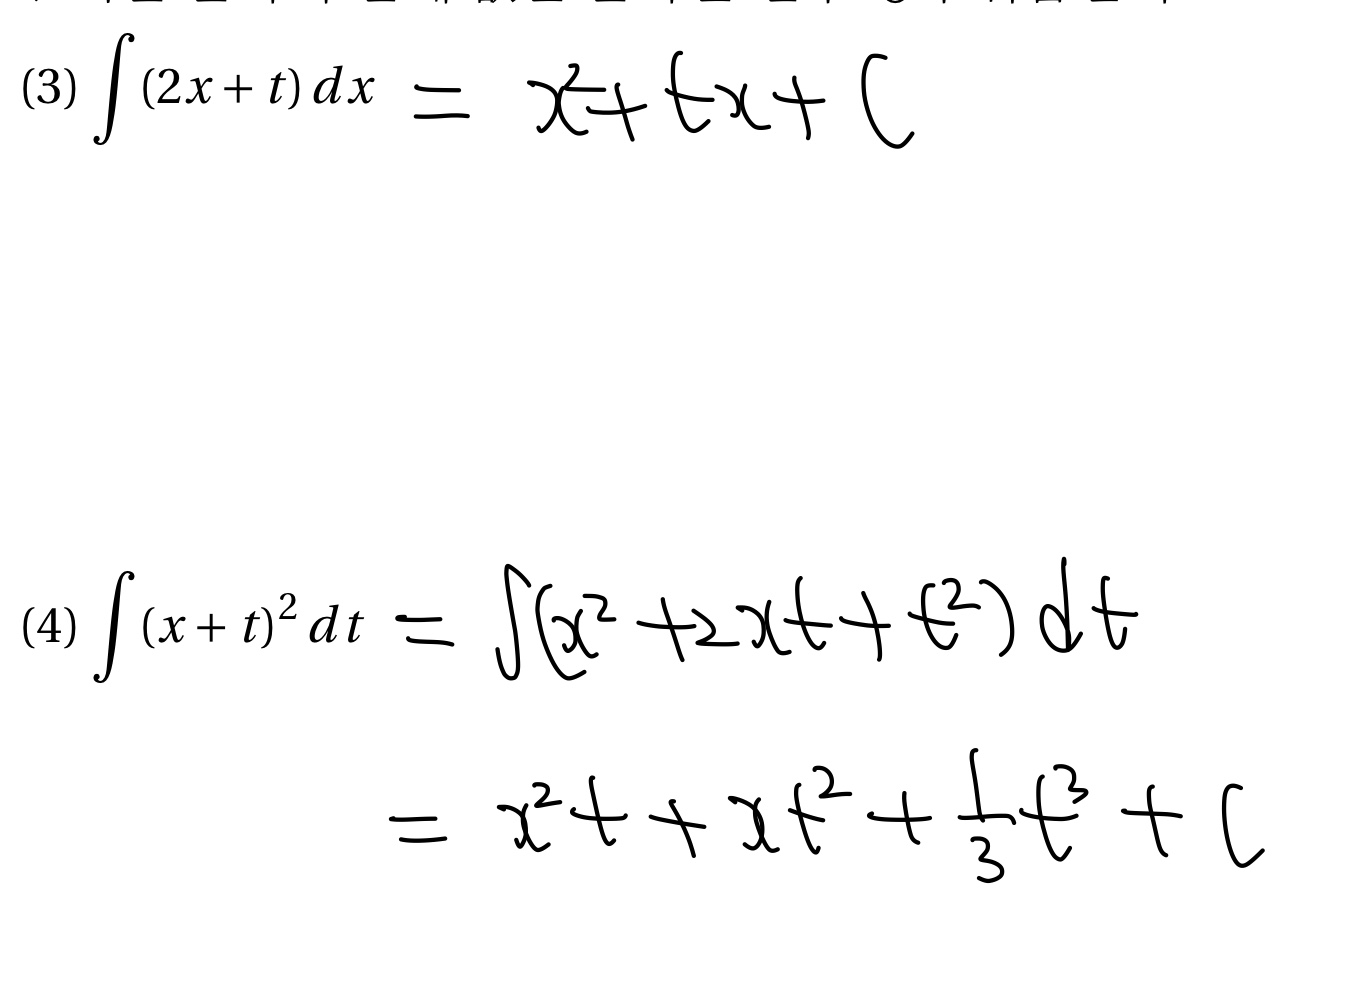 (3) ∫(2x + t) dx = x² + tx + C
(4) ∫(x + t)² dt = ∫(x² + 2xt + t²) dt
= x²t + xt² + 1/3 t³ + C